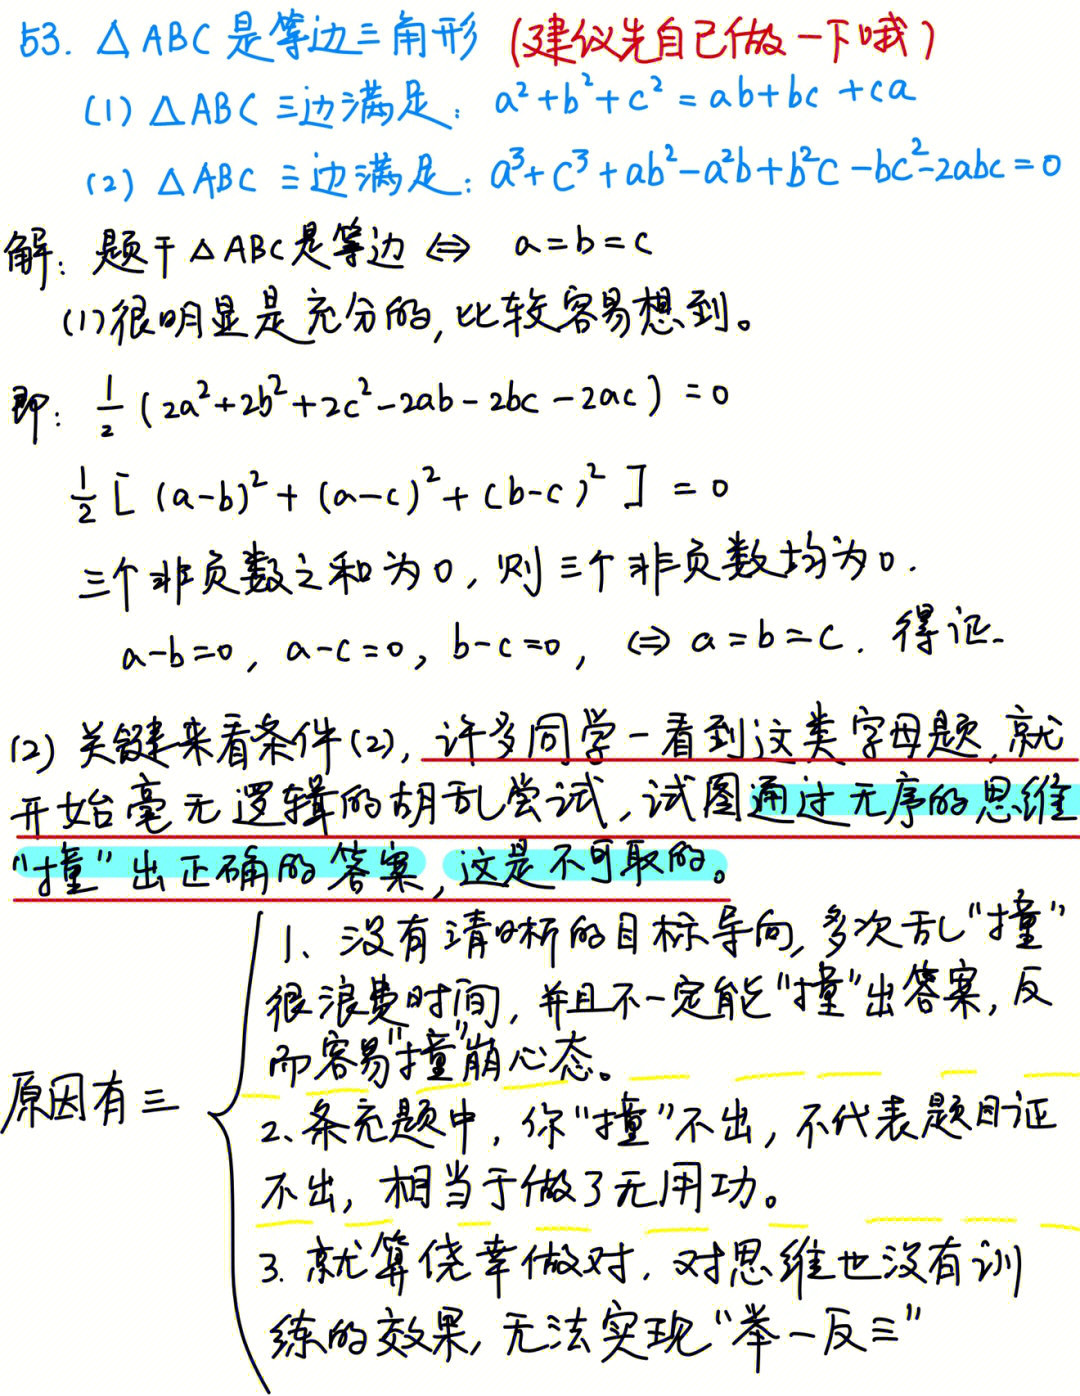 53. △ABC是等边三角形 (建议先自己做一下哦)
(1) △ABC三边满足: a²+b²+c²=ab+bc+ca
(2) △ABC三边满足: a³+c³+ab²-a²b+b²c-bc²-2abc=0
解: 题干△ABC是等边⇔ a=b=c
(1)很明显是充分的,比较容易想到。
即: 1/2(2a²+2b²+2c²-2ab-2bc-2ac)=0
1/2[(a-b)²+(a-c)²+(b-c)²]=0
三个非负数之和为0,则三个非负数均为0.
a-b=0, a-c=0, b-c=0, ⇔a=b=c. 得证.
(2) 关键来看条件(2),许多同学一看到这类字母题,就
开始毫无逻辑的胡乱尝试,试图通过无序的思维
“撞”出正确的答案,这是不可取的。
1、没有清晰的目标导向,多次乱“撞”
很浪费时间,并且不一定能“撞”出答案,反
而容易“撞”崩心态。
原因有三
2、条充题中,你“撞”不出,不代表题目证
不出,相当于做了无用功。
3. 就算侥幸做对,对思维也没有训
练的效果,无法实现“举一反三”